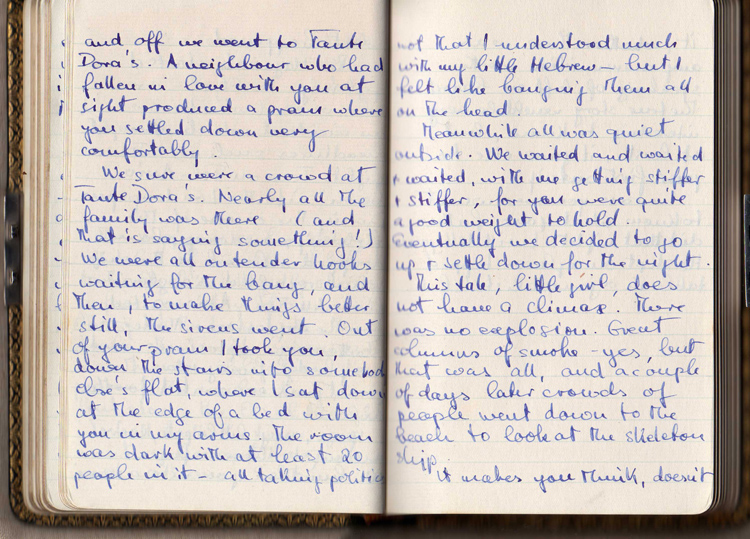 and, off we went to Tante
Dora's. A neighbour who had
fallen in love with you at
sight produced a pram where
you settled down very
comfortably.
We sure were a crowd at
Tante Dora's. Nearly all the
family was there (and
that is saying something!)
We were all on tender hooks
waiting for the bang and
then, to make things better
still, the sirens went. Out
of your pram I took you,
down the stairs into somebody
else's flat, where I sat down
at the edge of a bed with
you in my arms. The room
was dark with at least 20
people in it - all talking politics
not that I understood much
with my little Hebrew - but I
felt like banging them all
on the head
Meanwhile all was quiet
outside. We waited and waited
+ waited, with me getting stiffer
+ stiffer, for you were quite
a good weight to hold.
Eventually we decided to go
up + settle down for the night.
This tale, little girl, does
not have a climax. There
was no explosion. Great
columns of smoke - yes, but
that was all, and a couple
of days later crowds of
people went down to the
beach to look at the skeleton
ship.
It makes you think, doesn't